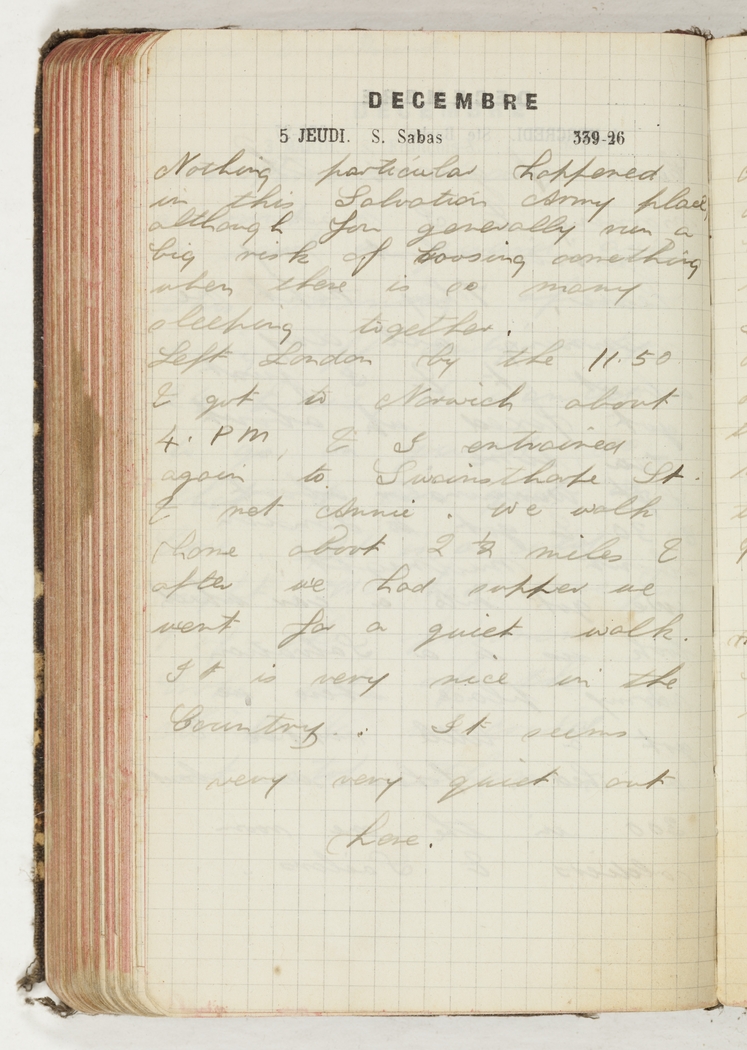 DECEMBRE
5 JEUDI. S. Sabas 339-26
Nothing particular happened
in this Salvation Army place,
although you generally run a
big risk of loosing something
when there is so many
sleeping together.
Left London by the 11.50
& got to Norwich about
4. PM, & I entrained
again to Swainsthorpe St.
& met Annie. we walk
home about 2 ½ miles &
after we had supper we
went for a quiet walk.
It is very nice in the
Country. It seems
very very quiet out
here.